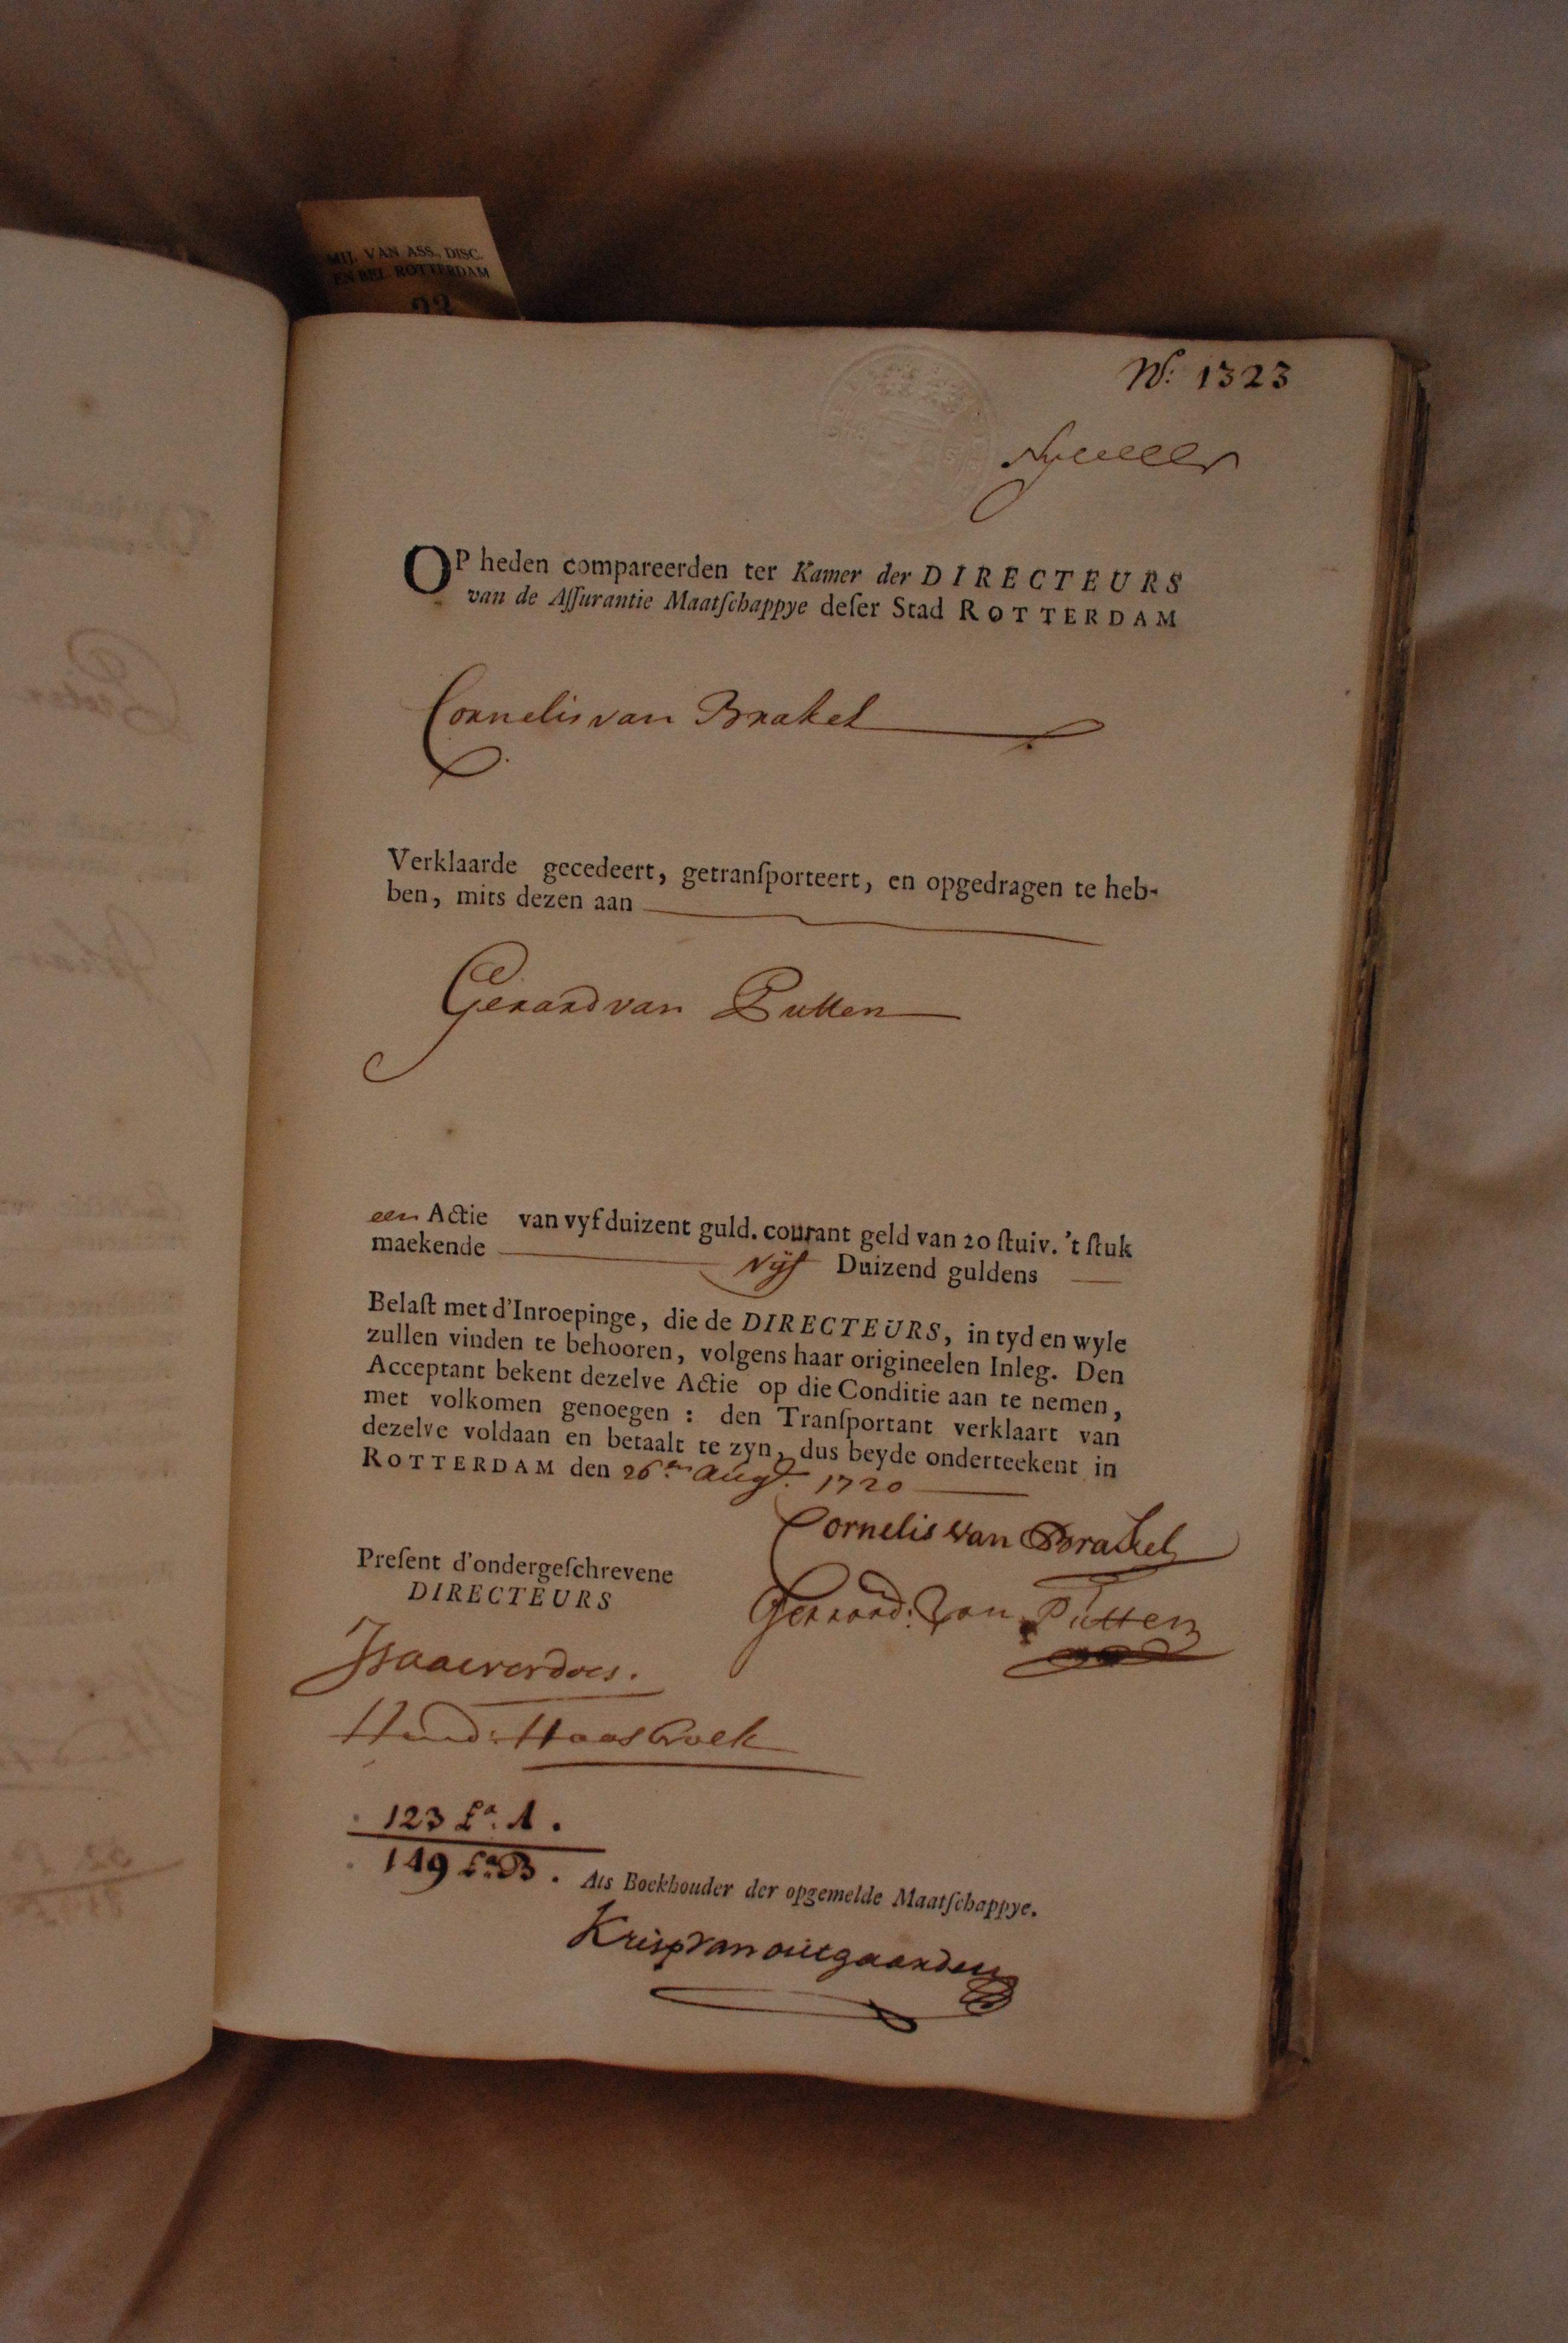 MIJ. VAN ASS., DISC.
EN BEL. ROTTERDAM
23
No: 1323
OP heden compareerden ter Kamer der DIRECTEURS
van de Aſſurantie Maatſchappye deſer Stad ROTTERDAM
Cornelis van Brakel
Verklaarde gecedeert, getranſporteert, en opgedragen te heb-
ben, mits dezen aan
Gerard van Putten
een Actie van vyf duizent guld. courant geld van 20 ſtuiv. 't ſtuk
maekende Vijf Duizend guldens
Belaſt met d'Inroepinge, die de DIRECTEURS, in tyd en wyle
zullen vinden te behooren, volgens haar origineelen Inleg. Den
Acceptant bekent dezelve Actie op die Conditie aan te nemen,
met volkomen genoegen : den Tranſportant verklaart van
dezelve voldaan en betaalt te zyn, dus beyde onderteekent in
ROTTERDAM den 26en Augt. 1720
Cornelis van Brakel
Preſent d'ondergeſchrevene
DIRECTEURS
Gerrard: Van Putten
Isaac verdoes.
Hend: Haasbroek
123 La. A.
149 La. B.
Als Boekhouder der opgemelde Maatſchappye.
Krisp van outgaarden